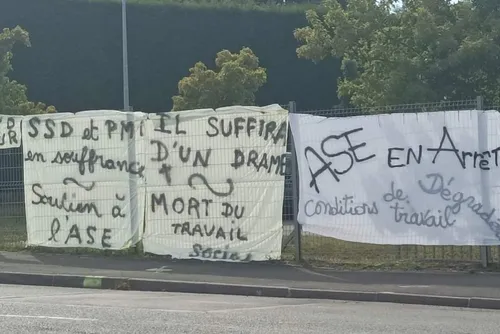 SSD et PMI
en souffrance
Soutien à
l'ASE
IL SUFFIRA
D'UN DRAME
MORT DU
TRAVAIL
Social
ASE EN Arrêt
Conditions de travail
Dégradé